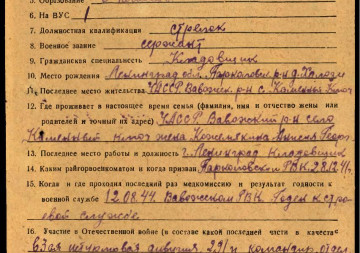 5. Образование
6. На ВУС 1
7. Должностная квалификация стрелок
8. Военное звание сержант
9. Гражданская специальность Кладовщик
10. Место рождения Ленинград. обл. Парголовск. р-н д.
11. Последнее место жительства УАССР Вавожск. р-н с. Каменный
12. Где проживает в настоящее время семья (фамилия, имя и отчество жены или
родителей и точный их адрес) УАССР Вавожский р-н село
Каменный жена
13. Последнее место работы и должность г. Ленинград Кладовщик
14. Каким райгорвоенкоматом и когда призван Парголовском РВК. 28.12.41г.
15. Когда и где проходил последний раз медкомиссию и результат годности к
военной службе 12.08.44. Вавожском РВК. Годен к стро-
евой службе.
16. Участие в Отечественной войне (в составе какой последней части в качестве
63ая дивизия, 291 п командир. отдел